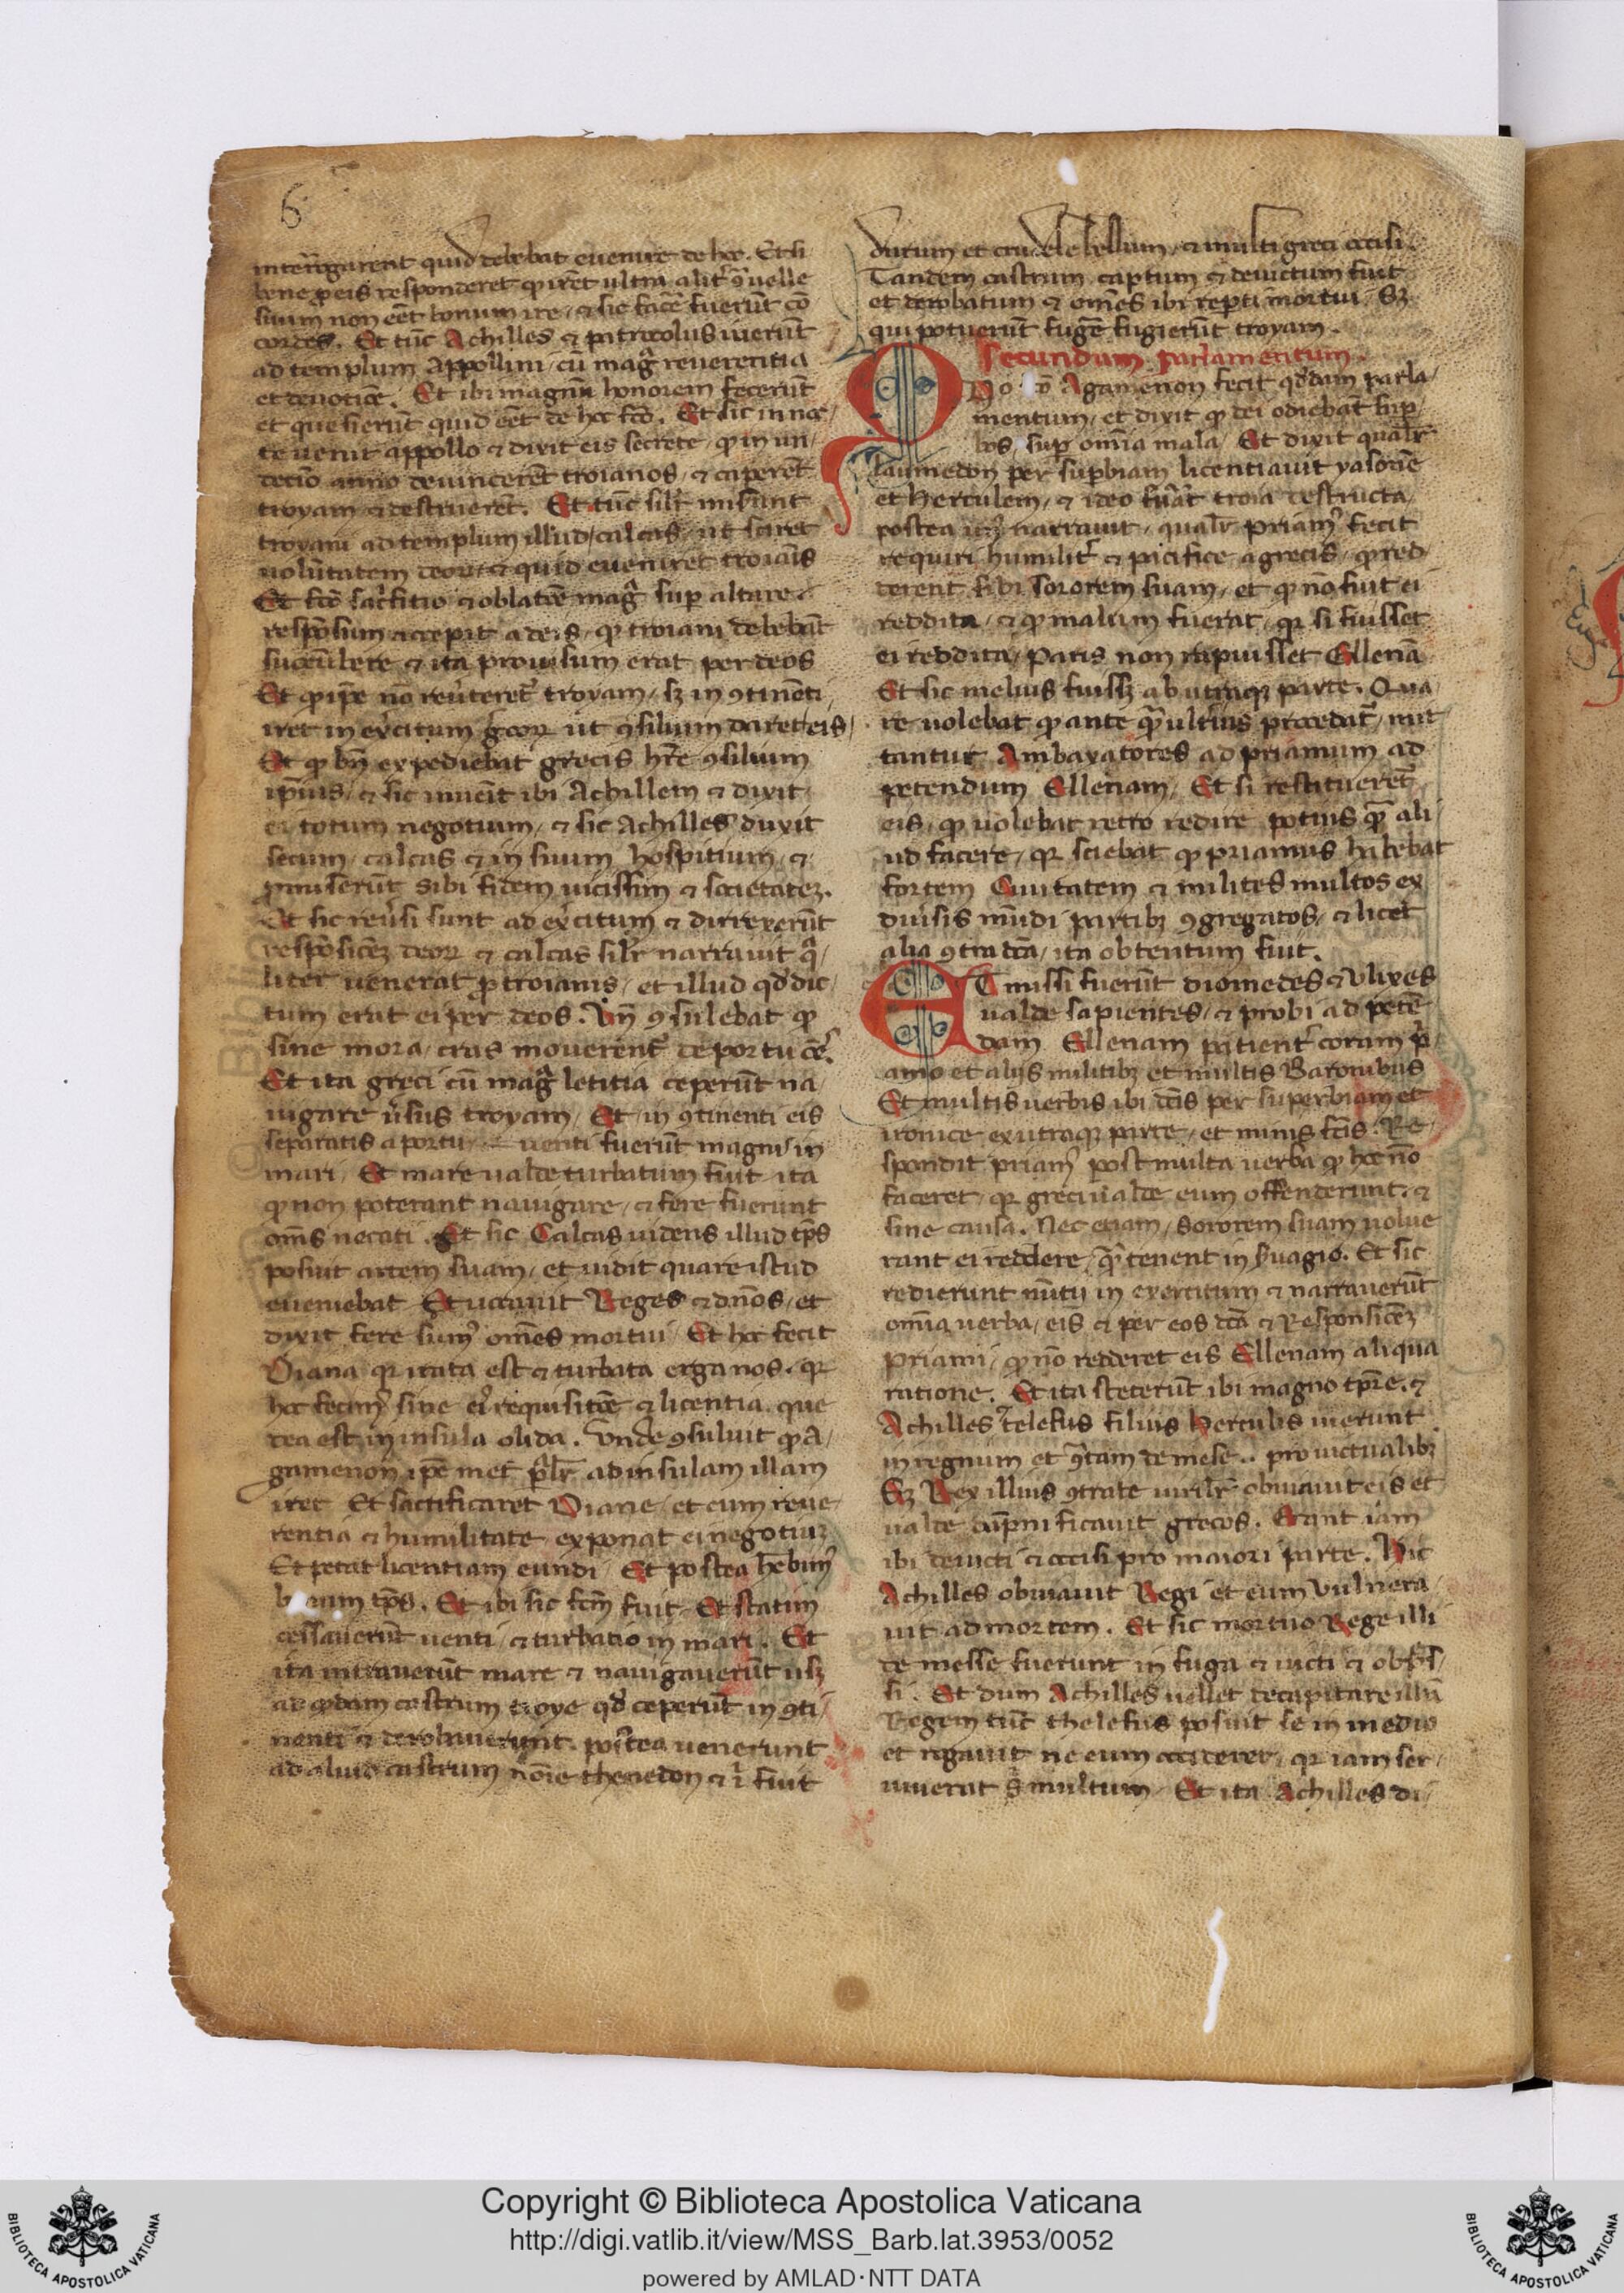 6
interrogarent quid debebat euenire de hoc. Et si
bene eis responderet qͥ irēt ultra alit᷑
suum non eēt bonum ire / ⁊ sic facē fuerūt cō
cordes. Et tūc Achilles ⁊ patrocolus iuerūt
ad templum Appollini / cū mag̃ reuerentia
et deuotiōe. Et ibi magnū honorem fecerūt
et quesierūt quid eēt de hoc fcō. Et sic in noc/
te uenit appollo ⁊ dixit eis secrete / ꝙ in un/
decīo anno deuincerēt troianos / ⁊ caperēt
troyam ⁊ destruerēt. Et tūc silr̄ miserunt
troyani ad templum illud / calcas / ut sciret
uolūtatem deoꝝ / ⁊ quid eueniret troianīs
Et fcō sacͥfitio ⁊ oblatōe mag̃ sup altare.
respōsum accepit a deis / ꝙ troiani debebāt
sucūbere ⁊ ita prouisum erat per deos
Et ꝙ ip̄e nō reũteret᷑ troyam / sꝫ in ꝯtinēti
iret in ex̃citum g̃coꝝ ut ꝯsilium daret eis /
Et ꝙ bn̄ expediebat grecis hr̄e ꝯsilium
ip̄ius / ⁊ sic inuēit ibi Achillem ⁊ dixit
ei totum negotium / ⁊ sic Achilles duxit
secum / calcas ⁊ in suum hospitium / ⁊
ꝓmiserūt sibi fidem uicissim ⁊ societateꝫ.
Et sic reũsi sunt ad ex̃citum ⁊ dirrexerūt
respōsiōeꝫ deoꝝ ⁊ calcas silr̄ narrauit qͣ/
liter uenerat ꝓ troianis / et illud qd̓ dic/
tum erat ei per deos. Vn̄ ꝯsulebat ꝙ
sine mora / cras mouerent᷑ de portu
Et ita greci cū mag̃ letitia ceperūt na/
uigare ũsus troyam / Et in ꝯtinenti eis
separatis a portu / uenti fuerūt magni in
mari / Et mare ualde turbatum fuit ita
ꝙ non poterant nauigare / ⁊ fere fuerunt
om̄s necati. Et sic Calcas uidens illud tp̄s
posuit artem suam / et uidit quare istud
eueniebat Et uocauit Reges ⁊ dn̄os / et
dixit fere sumꝰ om̄es mortui / Et hoc fecit
Diana qꝛ irata est ⁊ turbata erga nos. qꝛ
hoc fecimꝰ sine ei᷑ requisitōe ⁊ licentia. que
dea est in insula olida. Vnde ꝯsuluit ꝙ A/
gamenon ip̄e met ad insulam illam
iret Et sactificaret Diane / et cum reue/
rentia ⁊ humilitate exponat ei negotiuꝫ
Et petat licentiam eundi / Et postea hēbimꝰ
bonum tp̄s. Et ibi sic fcm̄ fuit Et statim
cessauerūt uenti / ⁊ turbatio in mari. Et
ita intrauerūt mare ⁊ nauigauerūt usꝫ
ad qͦdam castrum troye qd̓ ceperūt in ꝯti/
nenti ⁊ derobauerunt. postea uenerunt
ad aliud castrum nōie thenedon ⁊ ĩ fuit
durum et crudele bellum / ⁊ multi greci occisi.
Tandem castrum captum ⁊ deuictum fuit
et derobatum ⁊ om̄es ibi reperti mortui / Sꝫ
qui potuerūt fugē fugierūt troyam.
Secundum parlamentum.
Agamenon fecit qd̓dam parla/
mentum / et dixit ꝙ dei odiebāt sup̱/
bos / sup̱ omīa mala / Et dixit qualr̄
laumedon per sup̱biam licentiauit yasonē
et Herculem / ⁊ ideo troia destructa /
postea narrauit / qualr̄ priamꝰ fecit
requiri humilit᷑ ⁊ pacifice a grecis / ꝙ red/
derent sibi sororem suam / et ꝙ nō fuit ei
reddita / ⁊ ꝙ malum fuerat / qꝛ si fuisset
ei reddita / Paris non rapuisset Ellenā
Et sic melius fuissꝫ ab utraqꝫ parte. Qua/
re uolebat ꝙ ante qͣ ulterius procedat᷑ / mit
tantur Ambaxatores ad priamum ad
petendum Ellenam / Et si restituerēt᷑
eis / ꝙ uolebat retro redire potius qͣ ali/
ud facere / qꝛ sciebat ꝙ priamus habebat
fortem Ciuitatem ⁊ milites multos ex
diũsis mūdi partibꝫ ꝯgregatos / ⁊ licet
alia ꝯtra dcā / ita obtentum fuit.
ET missi fuerūt diomedes ⁊ Vlixes
ualde sapientes / ⁊ probi ad petē
dam Ellenam coram pͥ/
amo et alijs militibꝫ et multis Baronibus
Et multis uerbis ibi dcīs per superbiam et
ironice ex utraqꝫ parte / et minis fcīs. Re/
spondit priamꝰ post multa uerba ꝙ hoc nō
faceret / qꝛ greci ualde eum offenderunt. ⁊
sine causa. Nec etiam / sororem suam uolue
rant ei reddere / qͣ tenent in Et sic
redierunt nūtii in exercitum ⁊ narrauerūt
omīa uerba / eis ⁊ per eos dcā ⁊ Responsiōeꝫ
priami / ꝙ nō redderet eis Ellenam aliqua
ratione. Et ita steterūt ibi magno tp̄re. ⁊
Achilles ⁊ telefus filius Herculis iuerunt
in regnum et ꝯtͣtam de mese.. pro uictualibꝫ
Sꝫ Rex illius ꝯtrate uirilr̄ obuiauit eis et
ualde dāpnificauit grecos. Erant iam
ibi deuicti ⁊ occisi pro maiori parte. Hic
Achilles obuiauit Regi et eum Vulnera/
uit ad mortem. Et sic mortuo Rege illi
de messe fuerunt in fuga ⁊ uicti ⁊
si. Et dum Achilles uellet decapitare illū
Regem tūc thelefus posuit se in medio
et rogauit ne eum occideret / qꝛ iam ser/
uiuerat s̓ multum / Et ita Achilles di/
Copyright © Biblioteca Apostolica Vaticana
http://digi.vatlib.it/view/MSS_Barb.lat.3953/0052
powered by AMLAD·NTT DATA
BIBLIOTECA APOSTOLICA VATICANA
BIBLIOTECA APOSTOLICA VATICANA